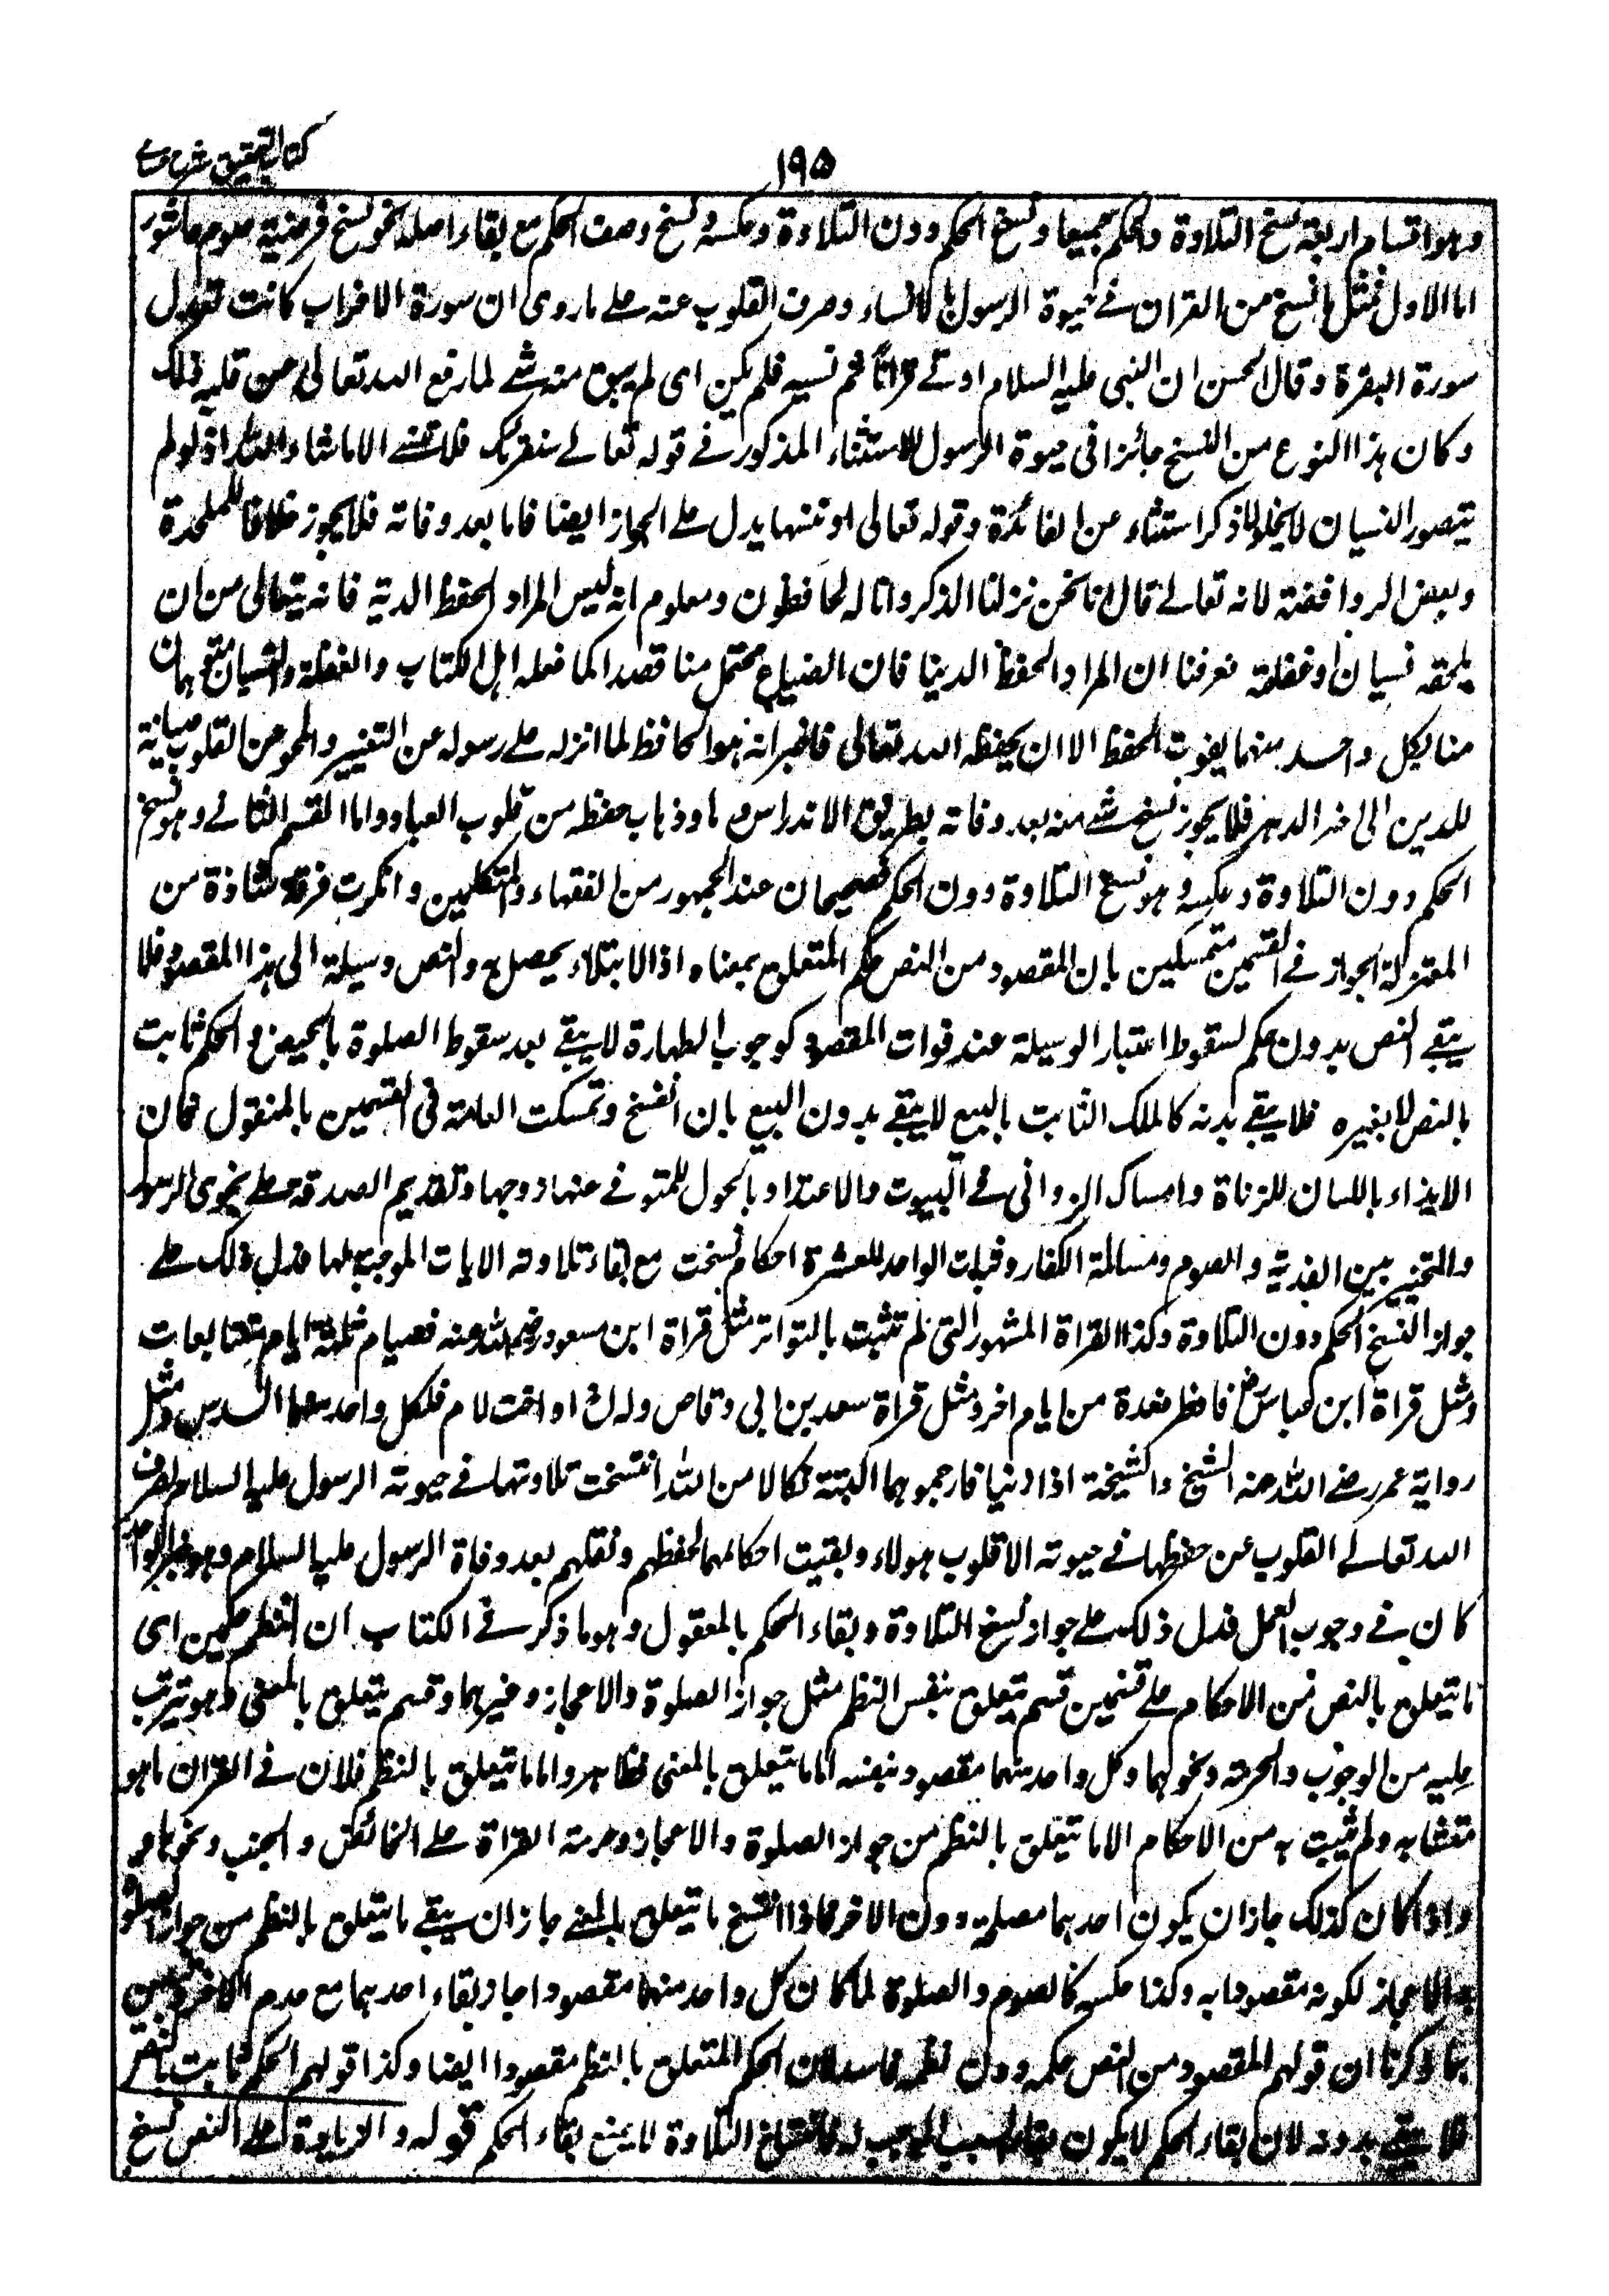 كتاب التحقيق شرح حسامى
١٩٥
وهو اقسام اربعة نسخ التلاوة والحكم جميعا ونسخ الحكم دون التلاوة وعكسه ونسخ وصف الحكم مع بقاء اصله نحو نسخ فرضية صوم عاشوراء
اما الاول فمثل ما نسخ من القران فے حيوة الرسول بالانساء وصرف القلوب عنه علے ما روى ان سورة الاحزاب كانت تعدل
سورة البقرة وقال الحسن ان النبى عليه السلام اوتے قرانًا ثم نسيه فلم يكن اى لم يبق منه شے لما رفع الله تعالى عن قلبه ذلك
وكان هذا النوع من النسخ جائزا فى حيوة الرسول للاستثناء المذكور فے قوله تعالے سنقرئك فلا تنسے الا ما شاء الله اذ لو لم
يتصور النسيان لا يخلو ذكر استثناء عن الفائدة وقوله تعالى او ننسها يدل علے الجواز ايضا فاما بعد وفاته فلا يجوز خلافا للملحدة
وبعض الروافضة لانه تعالے قال انا نحن نزلنا الذكر وانا له لحافظون ومعلوم انه ليس المراد الحفظ لديه فانه يتعالى من ان
يلحقه نسيان او غفلة فعرفنا ان المراد الحفظ لدينا فان الضياع محتمل منا قصدا كما فعله اهل الكتاب والغفلة والنسيان متوهمان
منا لكل واحد منهما يفوت الحفظ الا ان يحفظه الله تعالى فاخبر انه هو الحافظ لما انزله علے رسوله عن التغيير والمحو عن القلوب صيانة
للدين الى اخر الدهر فلا يجوز نسخ شے منه بعد وفاته بطريق الاندراس وذهاب حفظه من قلوب العباد واما القسم الثانے وهو نسخ
الحكم دون التلاوة وعكسه وهو نسخ التلاوة دون الحكم فصحيحان عند الجمهور من الفقهاء والمتكلمين وانكرت فرقة شاذة من
المعتزلة الجواز فے القسمين متمسكين بان المقصود من النص حكم المتعلق بمعناه اذ الابتلاء يحصل به والنص وسيلة الى هذا المقصود فلا
يبقے النص بدون حكم لسقوط اعتبار الوسيلة عند فوات المقصود كوجوب الطهارة لا يبقے بعد سقوط الصلوة بالحيض والحكم ثابت
بالنص لا بغيره فلا يبقے بدنه كالملك الثابت بالبيع لا يبقے بدون البيع بان انفسخ وتمسكت العامة فى القسمين بالمنقول فان
الايذاء باللسان للزناة وامساك الزوانى فے البيوت والاعتداد بالحول للمتوفے عنها زوجها وتقديم الصدقة علے نجوى الرسول
والتخيير بين الفدية والصوم ومسالمة الكفار وثبات الواحد للعشرة احكام نسخت مع بقاء تلاوة الايات الموجبة لها فدل ذلك علے
جواز النسخ الحكم دون التلاوة وكذا القراة المشهور التى لم تثبت بالتواتر مثل قراة ابن مسعود رضى الله عنه فصيام ثلثة ايام متتابعات
ومثل قراة ابن عباس رض فافطر فعدة من ايام اخر ومثل قراة سعد بن ابى وقاص وله اخ او اخت لام فلكل واحد منهما السدس ومثل
رواية عمر رضے الله عنه الشيخ والشيخة اذا زنيا فارجموهما البتة نكالا من الله انتسخت تلاوتها فے حيوته الرسول عليه السلام بصرف
الله تعالے القلوب عن حفظها فے حيوته الا قلوب هولاء وبقيت احكامها لحفظهم ونقلهم بعد وفاة الرسول عليه السلام وهو خبر الواحد
كان فے وجوب العمل فدل ذلك علے جواز نسخ التلاوة وبقاء الحكم بالمعقول وهو ما ذكر فے الكتاب ان للنظم حكمين اى
ما يتعلق بالنص من الاحكام علے قسمين قسم يتعلق بنفس النظم مثل جواز الصلوة والاعجاز وغيرهما وقسم يتعلق بالمعنى وهو يترتب
عليه من الوجوب والحرمة ونحوهما وكل واحد منهما مقصود بنفسه اما ما يتعلق بالمعنى فظاهر واما ما يتعلق بالنظم فلان فے القران ما هو
متشابه ولم يثبت به من الاحكام الا ما يتعلق بالنظم من جواز الصلوة والاعجاز وحرمة القراة علے الحائض والجنب ونحوهما و
واذا كان كذلك جاز ان يكون احدهما مصلحة دون الاخر فاذا انتسخ ما يتعلق بالمعنے جاز ان يبقے ما يتعلق بالنظم من جواز الصلوة
والاعجاز لكونه مقصودا به وكذا عكسه كالصوم والصلوة لما كان كل واحد منهما مقصودا جاز بقاء احدهما مع عدم الاخر وتبين
بما ذكرنا ان قولهم المقصود من النص حكمه دون نظمه فاسد لان الحكم المتعلق بالنظم مقصودا ايضا وكذا قولهم الحكم ثابت بالنص
فلا يبقے بدونه لان بقاء الحكم لا يكون ببقاء السبب الموجب له فانتساخ التلاوة لا يمنع بقاء الحكم قوله والزيادة علے النص نسخ